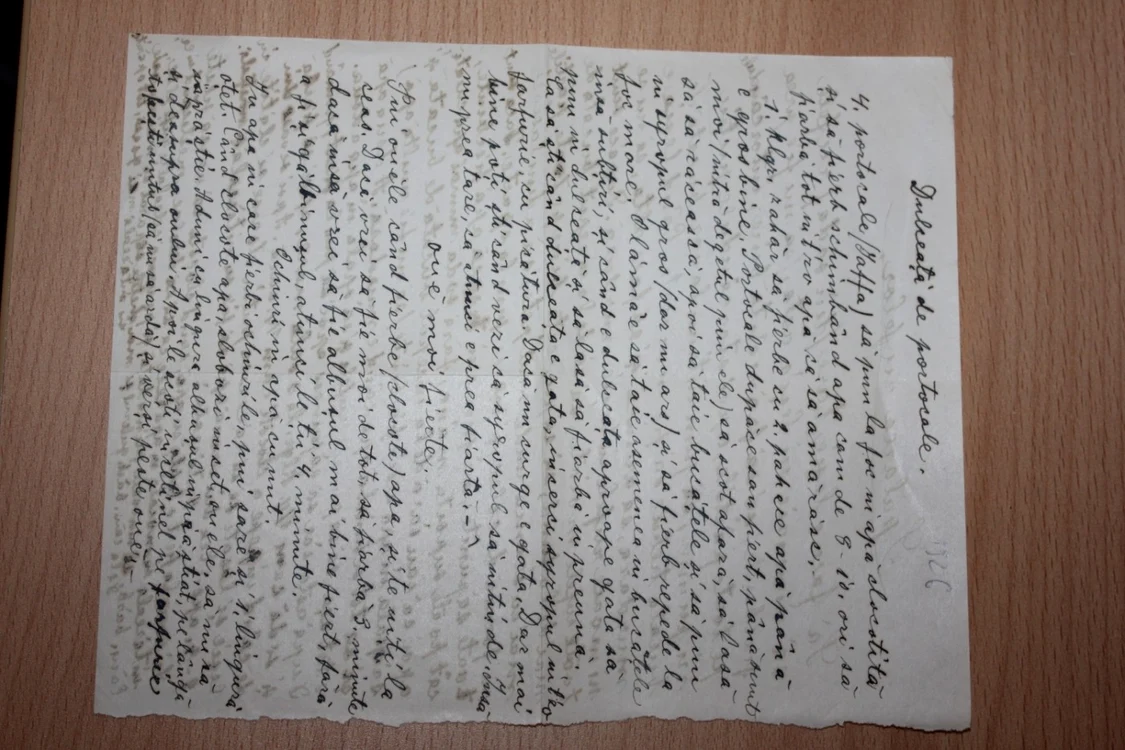 1926
Dulceață de portocale.
4 portocale (Jaffa) să pun la foc în apă clocotită
și să fierb schimbând apa cam de 8-10. ori să
fiarbă tot într'o apă că să amărăsc.
1 klgr. zahăr să fierbe cu 2. pahare apă până
e gros bine. Portocale dupăce sau fiert, până sunt
moi (intră degetul prin ele) să scot afară, să lasă
să să răcească, apoi să taie bucățele și să pun
în syropul gros (dar nu ars) și să fierb repede la
foc mare. O lămâie să taie asemenea în bucățele
însă subțiri, și când e dulceața aproape gata să
pun în dulceață și să lasă să fiarbă împreună.
Ca să știi când dulceața e gata, încerci syropul într'o
farfurie cu picătura. Dacă nu curge e gata. Dar mai
bine poți ști când vezi că syropul să întinde, însă
nu prea tare, că atunci e prea fiartă. -
ouě moi fierte.
Pui ouěle când fierbe (clocote) apa, și te uiți la
ceas. Dacă vrei să fie moi de tot, să fiarbă 3. minute
dacă însă vrei să fie albușul mai bine fiert, fără
a fi și gălbinușul, atunci le ții 4 minute.
Ochiuri în apă cu unt
În apa în care fierbi ochiurile, pui sare și 1. lingură
oțet. Când clocote apa slobozi încet ouěle, să nu să
împrăstie. Aduni cu lingura albușul împrăstiat, pe lângă
și deasupra oului. Apoi le scoți încetinel pe farfurie
topești untul (să nu să ardă) și verși peste ouě. -